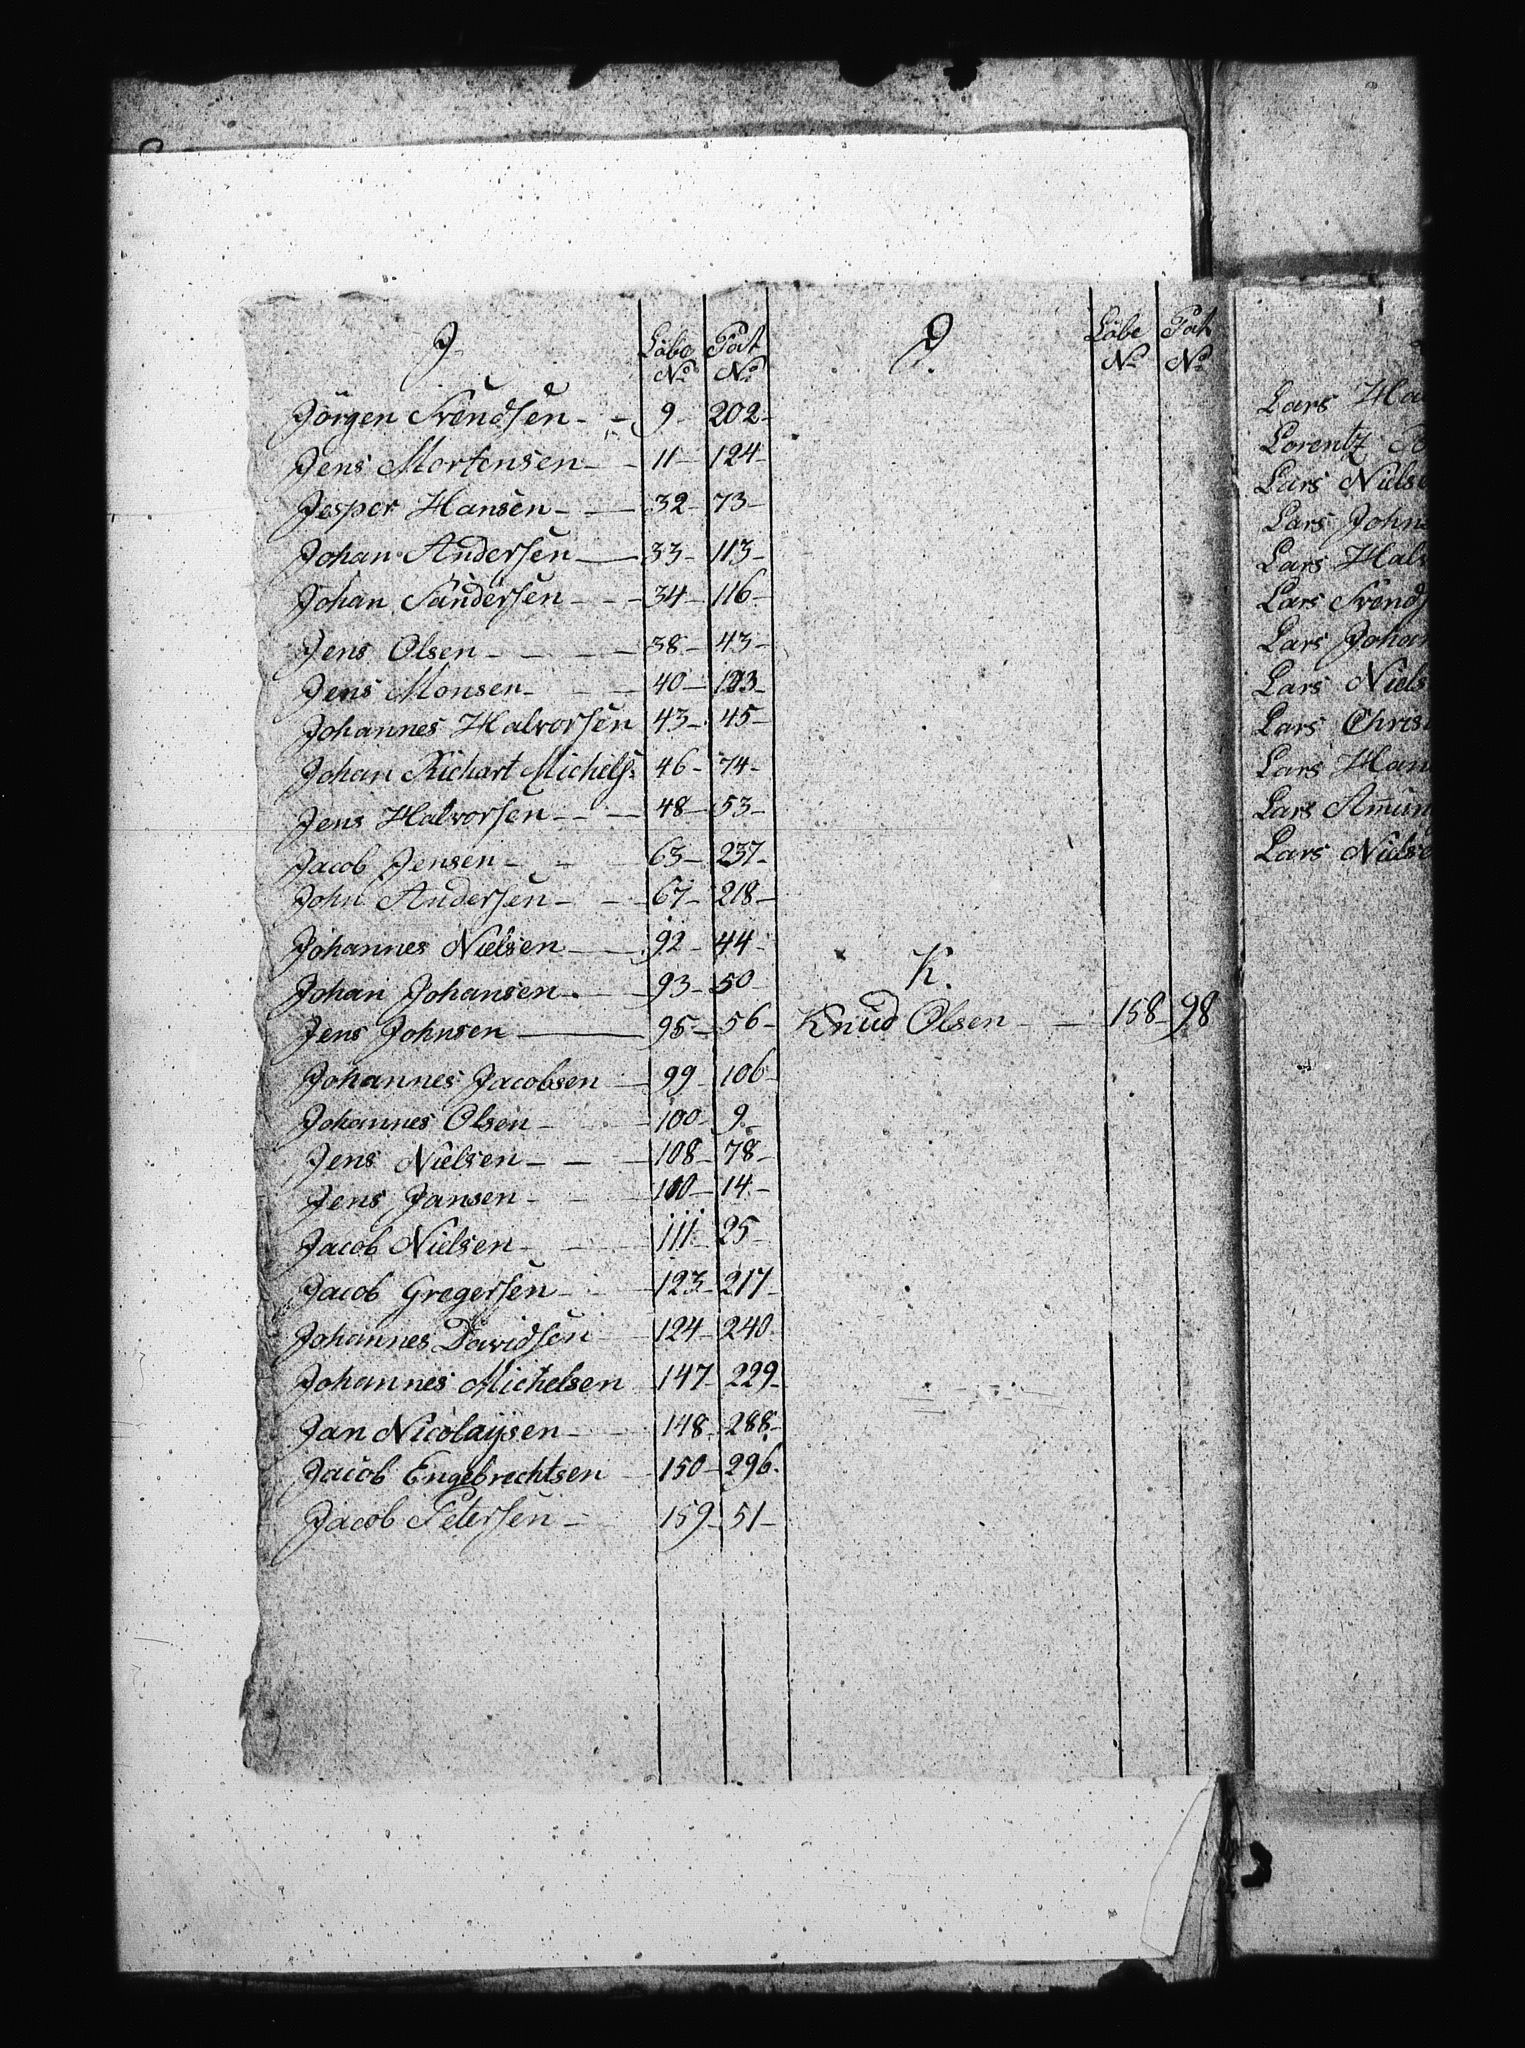 J. Löbe No Pat No
Jörgen Svendsen 9 202
Jens Mortensen 11 124
Jesper Hansen 32 73
Johan Andersen 33 113
Johan Sandersen 34 116
Jens Olsen 38 43
Jens Monsen 40 123
Johannes Halvorsen 43 45
Johan Richart Michels: 46 74
Jens Halvorsen 48 53
Jacob Jensen 63 237
John Andersen 67 218
Johannes Nielsen 92 44
Johan Johansen 93 50
Jens Johnsen 95 56
Johannes Jacobsen 99 106
Johannes Olsen 100 9
Jens Nielsen 108 78
Jens Jansen 110 14
Jacob Nielsen 111 25
Jacob Gregersen 123 217
Johannes Davidsen 124 240
Johannes Michelsen 147 229
Jan Nicolaysen 148 288
Jacob Engebrechtsen 150 296
Jacob Petersen 159 51
J. Löbe No Pat No
K.
Knud Olsen 158 98
Lars Ha
Lorentz
Lars Niels
Lars John
Lars Hal
Lars Svends
Lars Johan
Lars Niels
Lars Chris
Lars Han
Lars Amun
Lars Niels